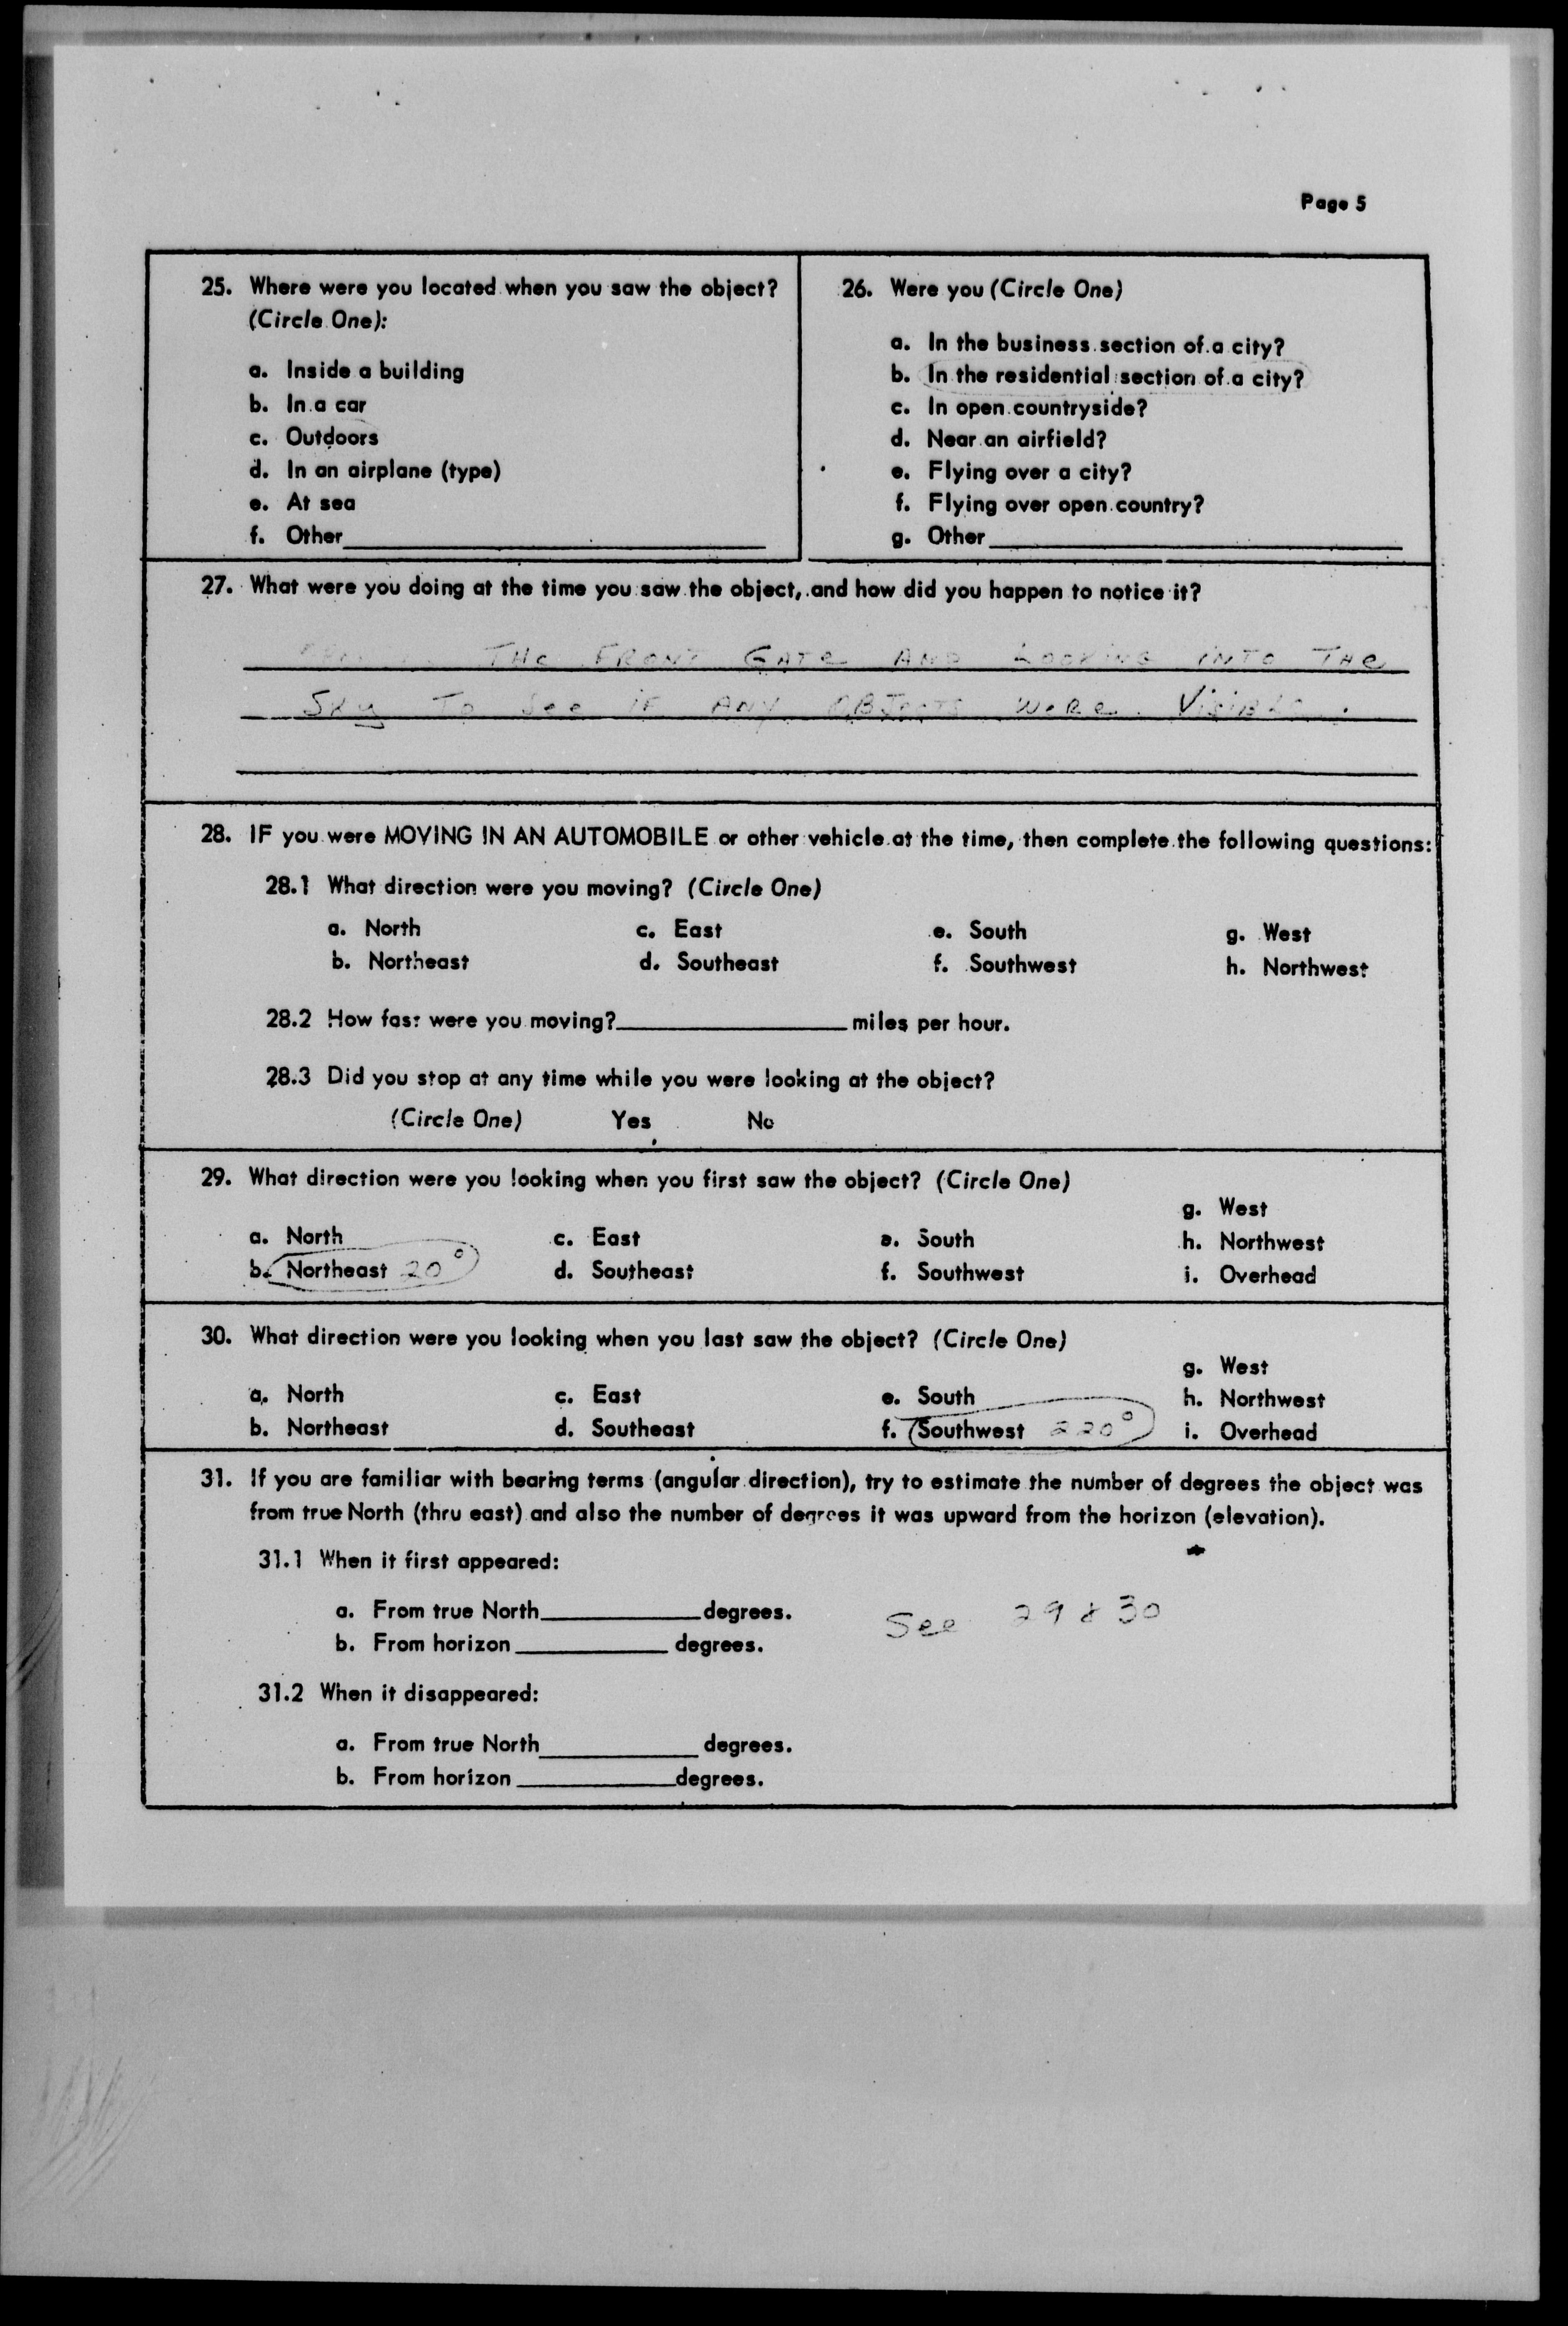 Page 5
25. Where were you located when you saw the object?
(Circle One):
a. Inside a building
b. In a car
c. Outdoors
d. In an airplane (type)
e. At sea
f. Other
26. Were you (Circle One)
a. In the business section of a city?
b. In the residential section of a city?
c. In open countryside?
d. Near an airfield?
e. Flying over a city?
f. Flying over open country?
g. Other
27. What were you doing at the time you saw the object, and how did you happen to notice it?
THe FRONT GATe AND LOOKING INTO THe
SKy To See iF ANY OBJeCTS WeRe VisiBLe.
28. IF you were MOVING IN AN AUTOMOBILE or other vehicle at the time, then complete the following questions:
28.1 What direction were you moving? (Circle One)
a. North c. East e. South g. West
b. Northeast d. Southeast f. Southwest h. Northwest
28.2 How fast were you moving? miles per hour.
28.3 Did you stop at any time while you were looking at the object?
(Circle One) Yes No
29. What direction were you looking when you first saw the object? (Circle One)
g. West
a. North c. East e. South h. Northwest
b. Northeast 20° d. Southeast f. Southwest i. Overhead
30. What direction were you looking when you last saw the object? (Circle One)
g. West
a. North c. East e. South h. Northwest
b. Northeast d. Southeast f. Southwest 220° i. Overhead
31. If you are familiar with bearing terms (angular direction), try to estimate the number of degrees the object was
from true North (thru east) and also the number of degrees it was upward from the horizon (elevation).
31.1 When it first appeared:
a. From true North degrees. See 29 & 30
b. From horizon degrees.
31.2 When it disappeared:
a. From true North degrees.
b. From horizon degrees.